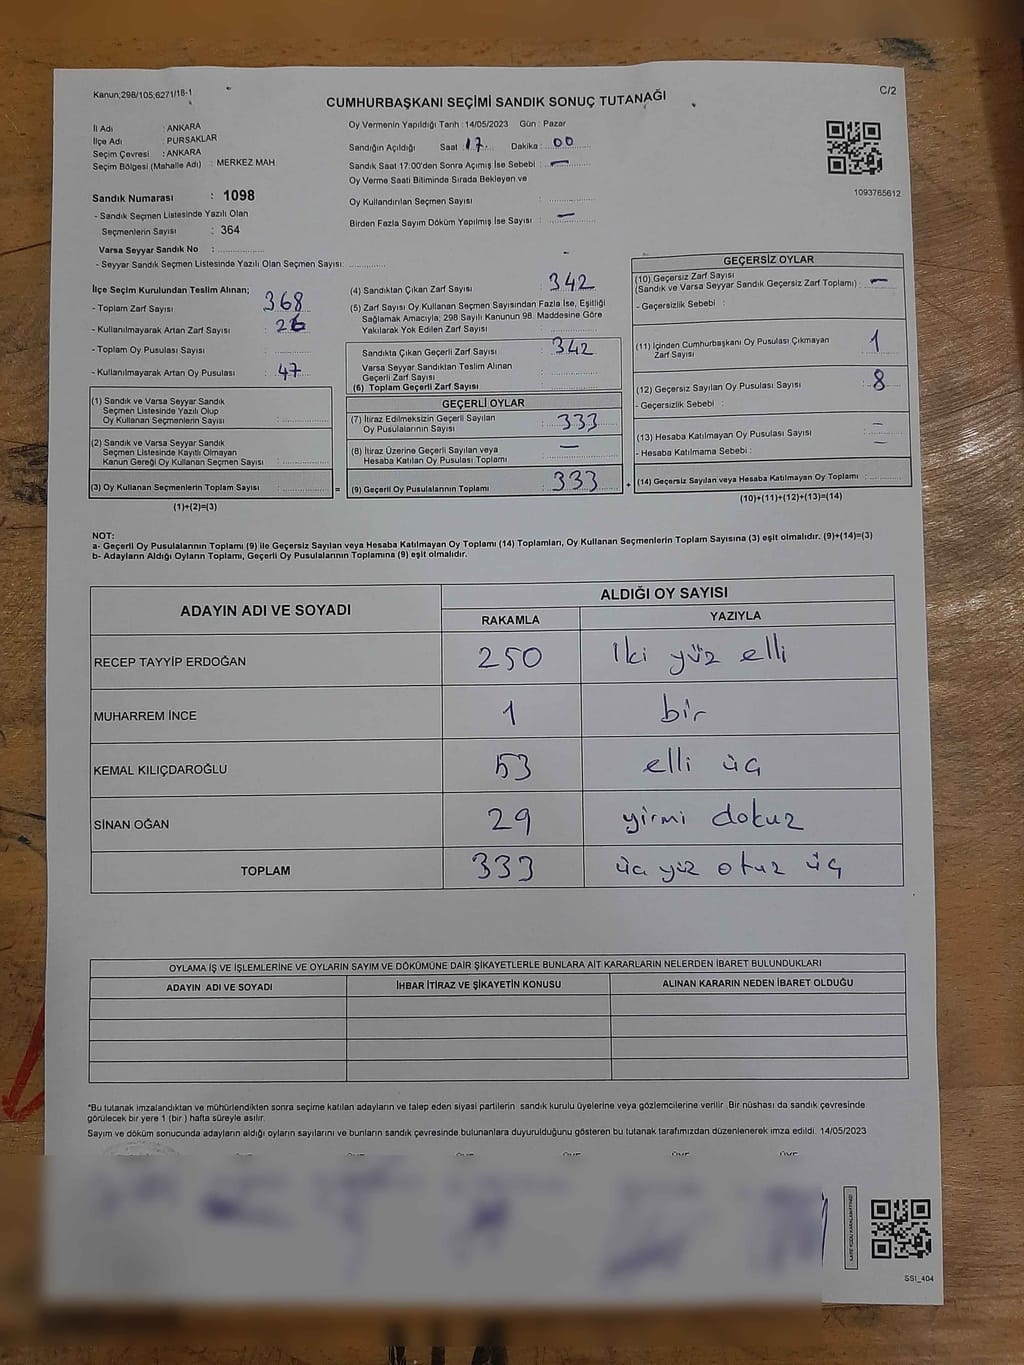 Kanun;298/105;6271/18-1
C/2
CUMHURBAŞKANI SEÇİMİ SANDIK SONUÇ TUTANAĞI
İl Adı : ANKARA
İlçe Adı : PURSAKLAR
Seçim Çevresi : ANKARA
Seçim Bölgesi (Mahalle Adı) : MERKEZ MAH.
Sandık Numarası : 1098
- Sandık Seçmen Listesinde Yazılı Olan
Seçmenlerin Sayısı : 364
Varsa Seyyar Sandık No :
- Seyyar Sandık Seçmen Listesinde Yazılı Olan Seçmen Sayısı:
Oy Vermenin Yapıldığı Tarih :14/05/2023 Gün : Pazar
Sandığın Açıldığı Saat : 17 Dakika : 00
Sandık Saat 17:00'den Sonra Açımış İse Sebebi : —
Oy Verme Saati Bitiminde Sırada Bekleyen ve
Oy Kullandırılan Seçmen Sayısı :
Birden Fazla Sayım Döküm Yapılmış İse Sayısı : —
1093765612
İlçe Seçim Kurulundan Teslim Alınan;
- Toplam Zarf Sayısı : 368
- Kullanılmayarak Artan Zarf Sayısı : 26
- Toplam Oy Pusulası Sayısı :
- Kullanılmayarak Artan Oy Pusulası : 47
(1) Sandık ve Varsa Seyyar Sandık
Seçmen Listesinde Yazılı Olup
Oy Kullanan Seçmenlerin Sayısı :
(2) Sandık ve Varsa Seyyar Sandık
Seçmen Listesinde Kayıtlı Olmayan
Kanun Gereği Oy Kullanan Seçmen Sayısı :
(3) Oy Kullanan Seçmenlerin Toplam Sayısı :
(1)+(2)=(3)
(4) Sandıktan Çıkan Zarf Sayısı : 342
(5) Zarf Sayısı Oy Kullanan Seçmen Sayısından Fazla İse, Eşitliği
Sağlamak Amacıyla; 298 Sayılı Kanunun 98. Maddesine Göre
Yakılarak Yok Edilen Zarf Sayısı :
Sandıkta Çıkan Geçerli Zarf Sayısı : 342
Varsa Seyyar Sandıktan Teslim Alınan
Geçerli Zarf Sayısı :
(6) Toplam Geçerli Zarf Sayısı :
=
GEÇERLİ OYLAR
(7) İtiraz Edilmeksizin Geçerli Sayılan
Oy Pusulalarının Sayısı : 333
(8) İtiraz Üzerine Geçerli Sayılan veya
Hesaba Katılan Oy Pusulası Toplamı : —
(9) Geçerli Oy Pusulalarının Toplamı : 333
+
GEÇERSİZ OYLAR
(10) Geçersiz Zarf Sayısı
(Sandık ve Varsa Seyyar Sandık Geçersiz Zarf Toplamı) : —
- Geçersizlik Sebebi :
(11) İçinden Cumhurbaşkanı Oy Pusulası Çıkmayan
Zarf Sayısı : 1
(12) Geçersiz Sayılan Oy Pusulası Sayısı : 8
- Geçersizlik Sebebi :
(13) Hesaba Katılmayan Oy Pusulası Sayısı : —
- Hesaba Katılmama Sebebi : —
(14) Geçersiz Sayılan veya Hesaba Katılmayan Oy Toplamı :
(10)+(11)+(12)+(13)=(14)
NOT:
a- Geçerli Oy Pusulalarının Toplamı (9) ile Geçersiz Sayılan veya Hesaba Katılmayan Oy Toplamı (14) Toplamları, Oy Kullanan Seçmenlerin Toplam Sayısına (3) eşit olmalıdır. (9)+(14)=(3)
b- Adayların Aldığı Oyların Toplamı, Geçerli Oy Pusulalarının Toplamına (9) eşit olmalıdır.
ADAYIN ADI VE SOYADI
ALDIĞI OY SAYISI
RAKAMLA YAZIYLA
RECEP TAYYİP ERDOĞAN 250 iki yüz elli
MUHARREM İNCE 1 bir
KEMAL KILIÇDAROĞLU 53 elli üç
SİNAN OĞAN 29 yirmi dokuz
TOPLAM 333 üç yüz otuz üç
OYLAMA İŞ VE İŞLEMLERİNE VE OYLARIN SAYIM VE DÖKÜMÜNE DAİR ŞİKAYETLERLE BUNLARA AİT KARARLARIN NELERDEN İBARET BULUNDUKLARI
ADAYIN ADI VE SOYADI İHBAR İTİRAZ VE ŞİKAYETİN KONUSU ALINAN KARARIN NEDEN İBARET OLDUĞU
*Bu tutanak imzalandıktan ve mühürlendikten sonra seçime katılan adayların ve talep eden siyasi partilerin sandık kurulu üyelerine veya gözlemcilerine verilir. Bir nüshası da sandık çevresinde
görülecek bir yere 1 (bir) hafta süreyle asılır.
Sayım ve döküm sonucunda adayların aldığı oyların sayılarını ve bunların sandık çevresinde bulunanlara duyurulduğunu gösteren bu tutanak tarafımızdan düzenlenerek imza edildi. 14/05/2023
SSI_404